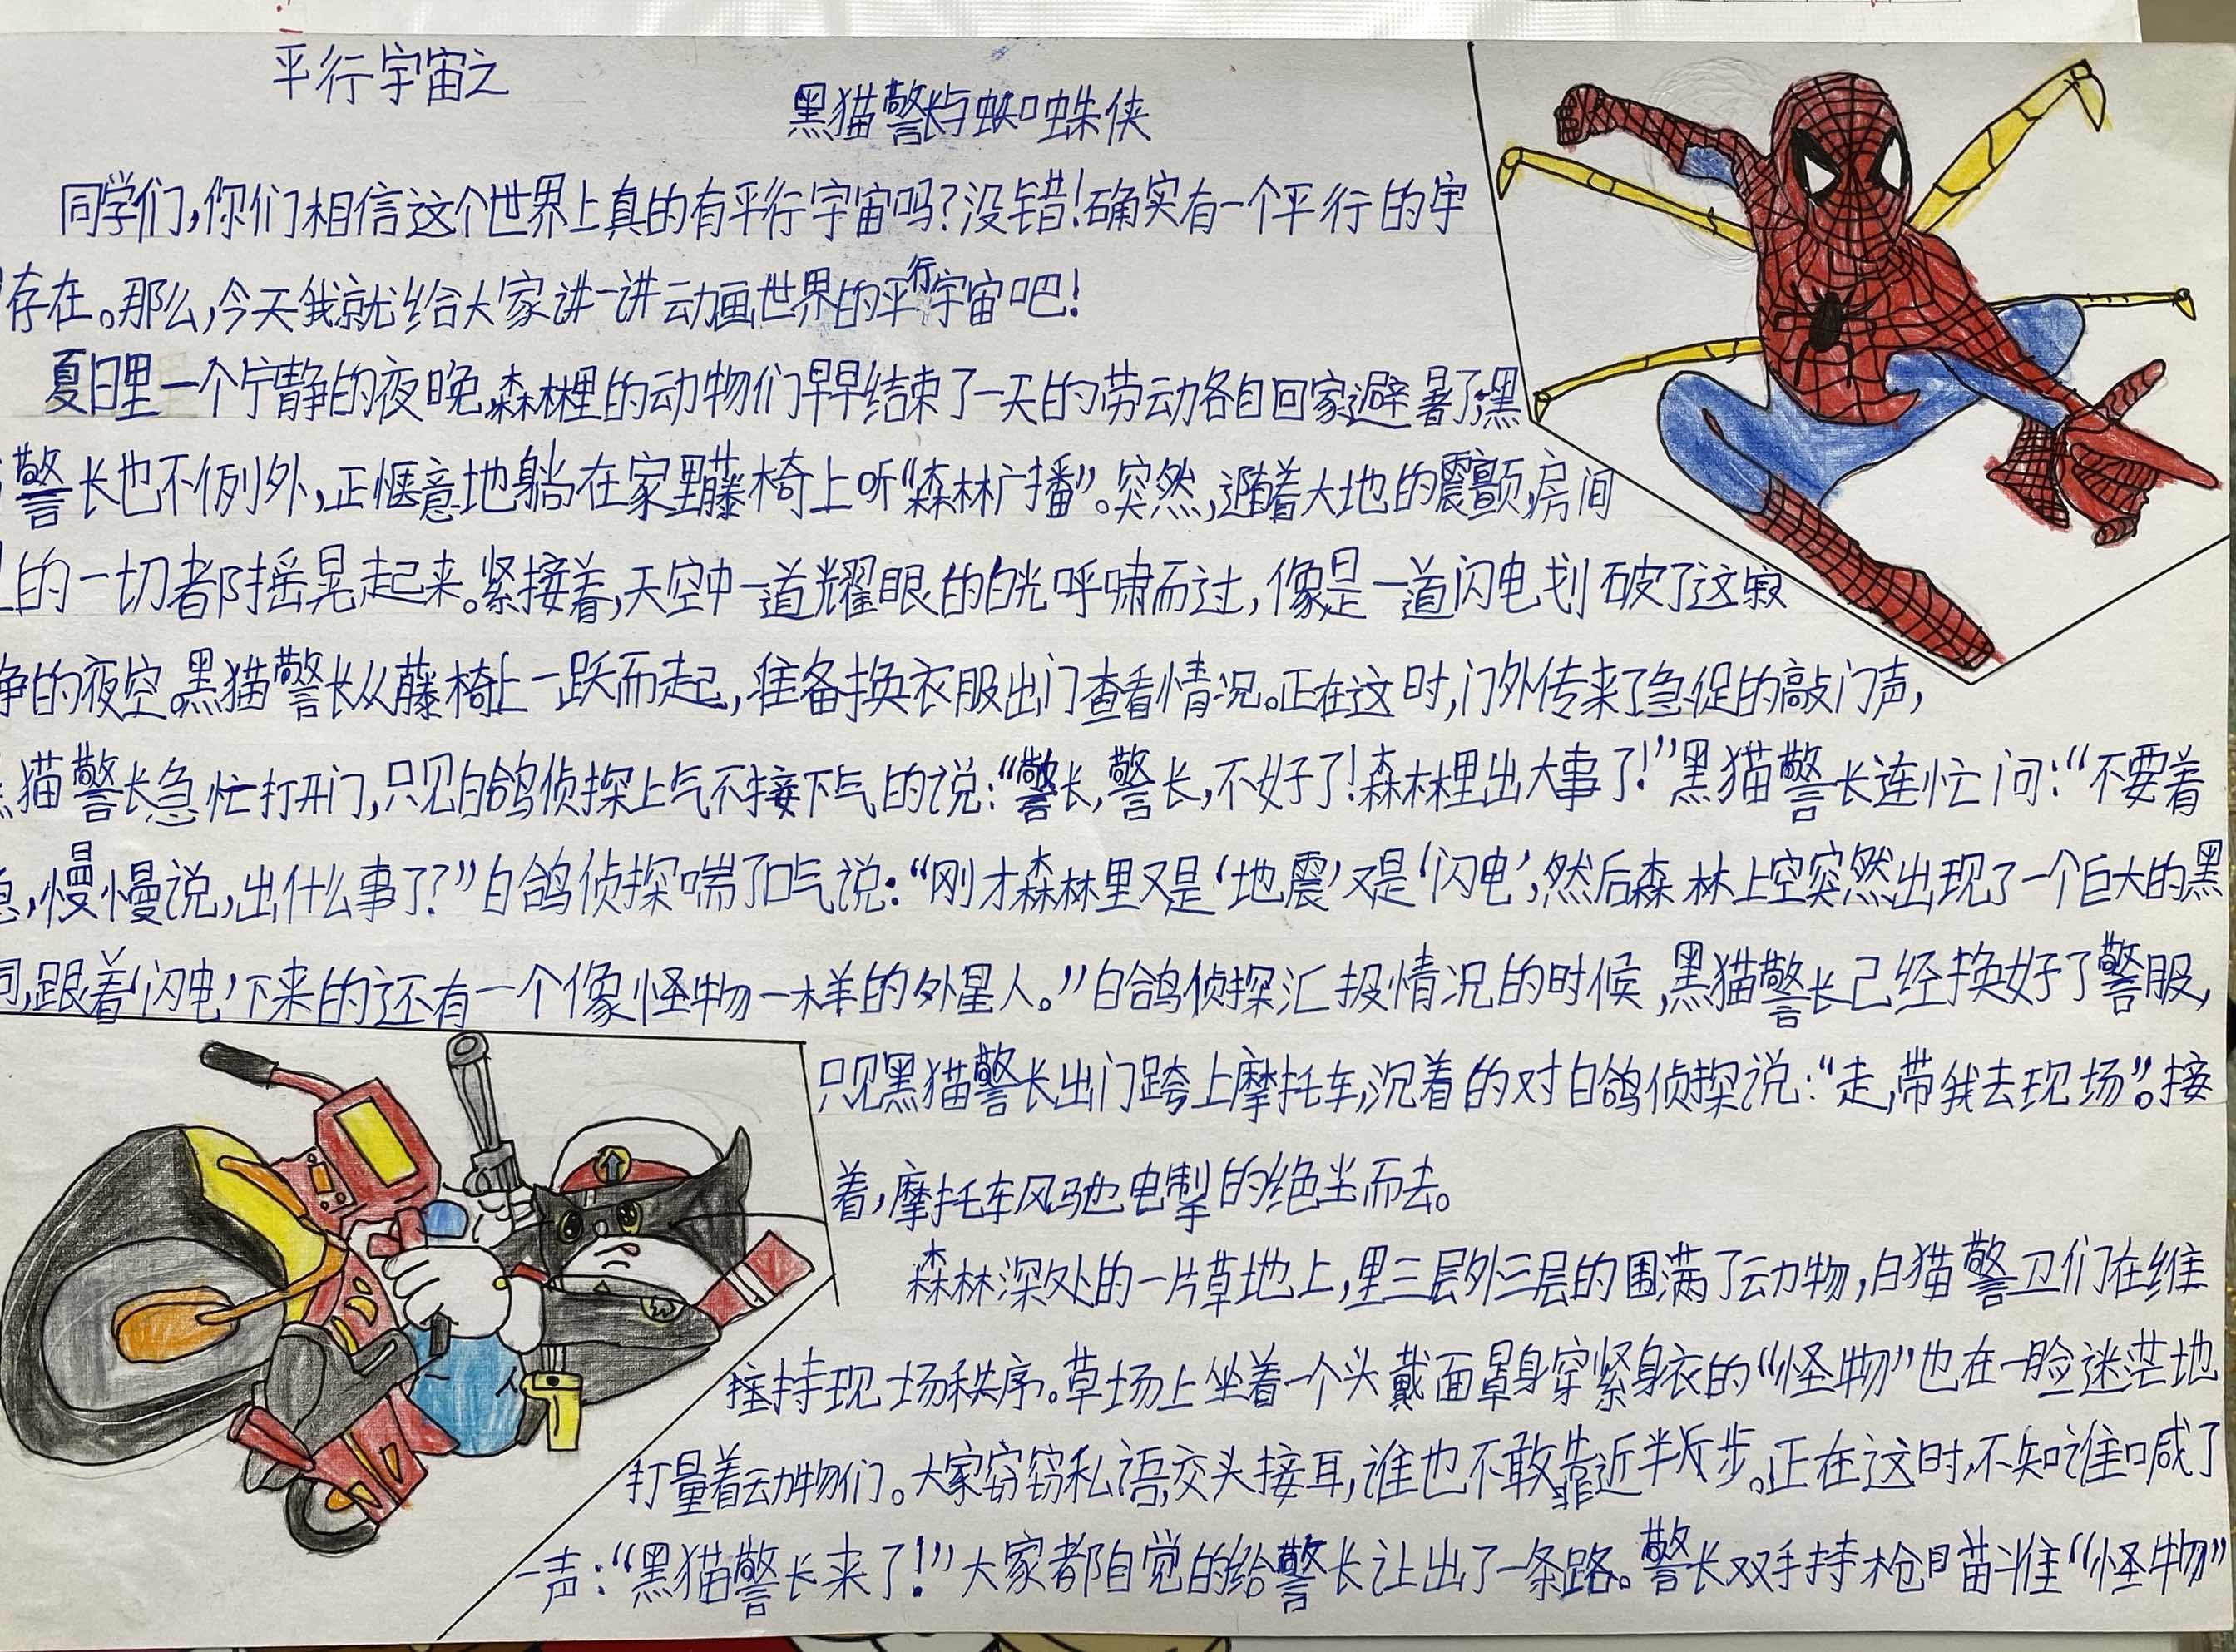 平行宇宙之
黑猫警长与蜘蛛侠
同学们,你们相信这个世界上真的有平行宇宙吗?没错!确实有一个平行的宇
存在。那么,今天我就给大家讲一讲动画世界的平行宇宙吧!
夏日里一个宁静的夜晚,森林里的动物们早早结束了一天的劳动各自回家避暑了,黑
警长也不例外,正惬意地躺在家里藤椅上听“森林广播”。突然,随着大地的震颤,房间
的一切都摇晃起来。紧接着,天空中一道耀眼的白光呼啸而过,像是一道闪电划破了这寂
静的夜空。黑猫警长从藤椅上一跃而起,准备换衣服出门查看情况。正在这时,门外传来了急促的敲门声,
猫警长急忙打开门,只见白鸽侦探上气不接下气的说:“警长,警长,不好了!森林里出大事了!”黑猫警长连忙问:“不要着
急,慢慢说,出什么事了?”白鸽侦探喘了口气说:“刚才森林里又是‘地震’又是‘闪电’,然后森林上空突然出现了一个巨大的黑
洞,跟着‘闪电’下来的还有一个像怪物一样的外星人。”白鸽侦探汇报情况的时候,黑猫警长已经换好了警服,
只见黑猫警长出门跨上摩托车,沉着的对白鸽侦探说:“走,带我去现场”。接
着,摩托车风驰电掣的绝尘而去。
森林深处的一片草地上,里三层外三层的围满了动物,白猫警卫们在维
持现场秩序。草场上坐着一个头戴面罩身穿紧身衣的“怪物”也在一脸迷茫地
打量着动物们。大家窃窃私语,交头接耳,谁也不敢靠近半步。正在这时,不知谁喊了
一声:“黑猫警长来了!”大家都自觉的给警长让出了一条路。警长双手持枪瞄准“怪物”